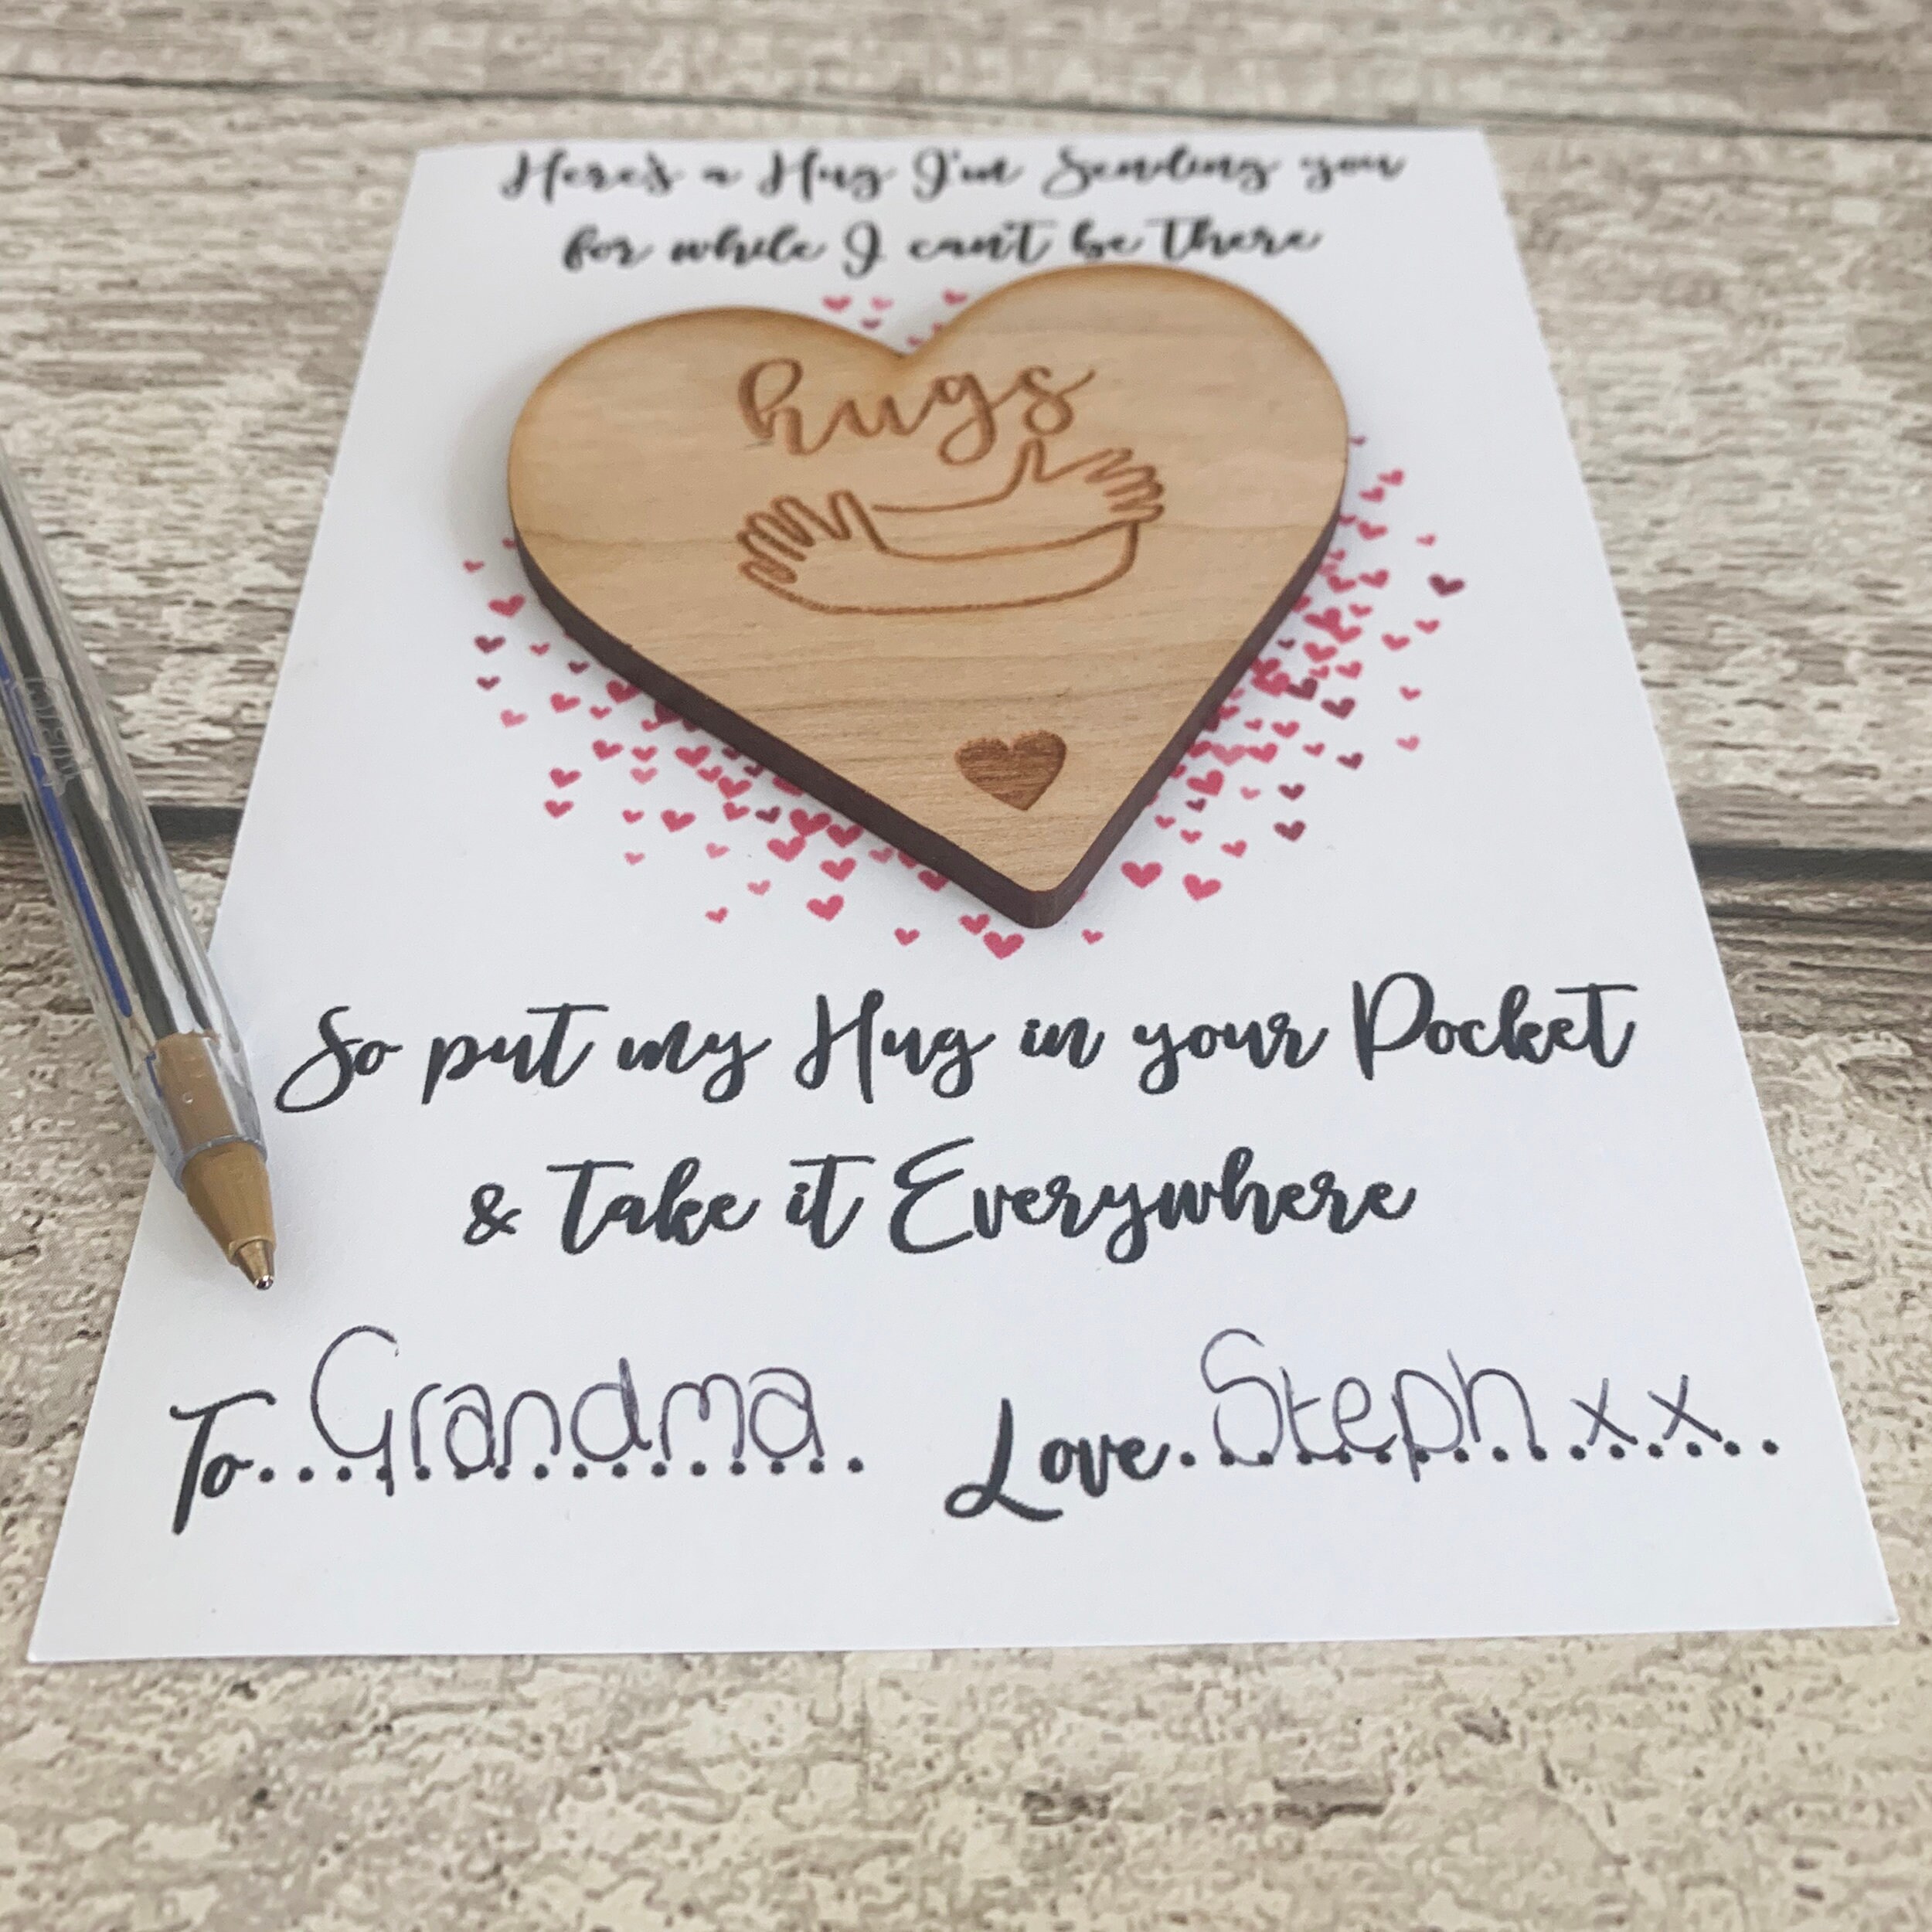 Here's a Hug I'm Sending you
for while I can't be there
hugs
So put my Hug in your Pocket
& take it Everywhere
To..Grandma. Love.Steph xx..